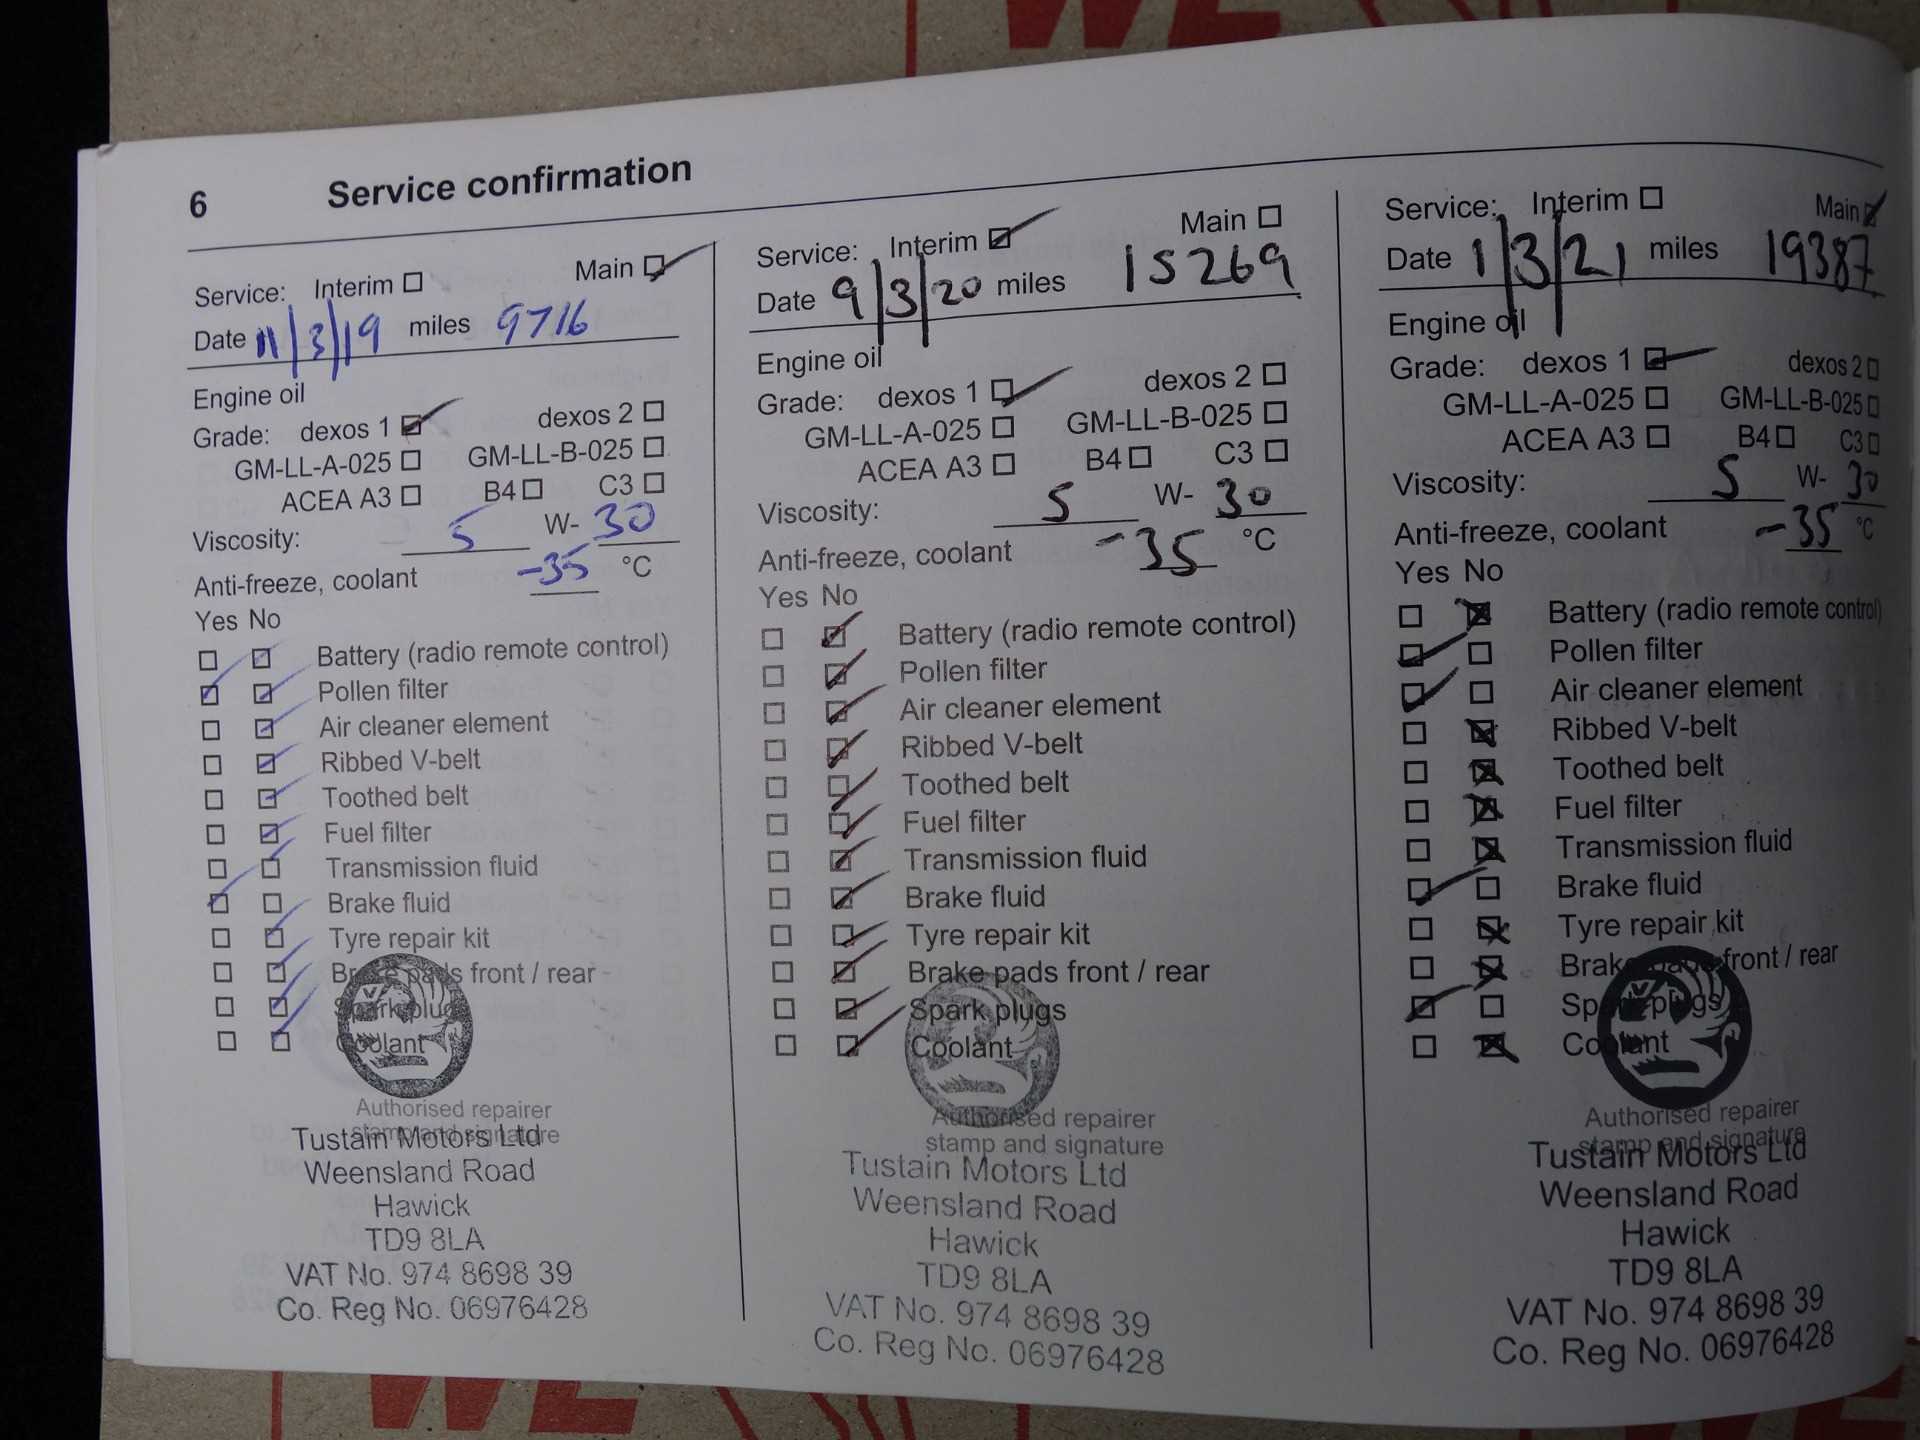 6 Service confirmation
Service: Interim Main
Date 11/3/19 miles 9716
Engine oil
Grade: dexos 1 dexos 2
GM-LL-A-025 GM-LL-B-025
ACEA A3 B4 C3
Viscosity: 5 W- 30
Anti-freeze, coolant -35 °C
Yes No
Battery (radio remote control)
Pollen filter
Air cleaner element
Ribbed V-belt
Toothed belt
Fuel filter
Transmission fluid
Brake fluid
Tyre repair kit
Brake pads front / rear
Spark plugs
Coolant
Authorised repairer
stamp and signature
Tustain Motors Ltd
Weensland Road
Hawick
TD9 8LA
VAT No. 974 8698 39
Co. Reg No. 06976428
Service: Interim Main
Date 9/3/20 miles 15269
Engine oil
Grade: dexos 1 dexos 2
GM-LL-A-025 GM-LL-B-025
ACEA A3 B4 C3
Viscosity: 5 W- 30
Anti-freeze, coolant -35 °C
Yes No
Battery (radio remote control)
Pollen filter
Air cleaner element
Ribbed V-belt
Toothed belt
Fuel filter
Transmission fluid
Brake fluid
Tyre repair kit
Brake pads front / rear
Spark plugs
Coolant
Authorised repairer
stamp and signature
Tustain Motors Ltd
Weensland Road
Hawick
TD9 8LA
VAT No. 974 8698 39
Co. Reg No. 06976428
Service: Interim Main
Date 1/3/21 miles 19387
Engine oil
Grade: dexos 1 dexos 2
GM-LL-A-025 GM-LL-B-025
ACEA A3 B4 C3
Viscosity: 5 W- 30
Anti-freeze, coolant -35 °C
Yes No
Battery (radio remote control)
Pollen filter
Air cleaner element
Ribbed V-belt
Toothed belt
Fuel filter
Transmission fluid
Brake fluid
Tyre repair kit
Brake pads front / rear
Spark plugs
Coolant
Authorised repairer
stamp and signature
Tustain Motors Ltd
Weensland Road
Hawick
TD9 8LA
VAT No. 974 8698 39
Co. Reg No. 06976428